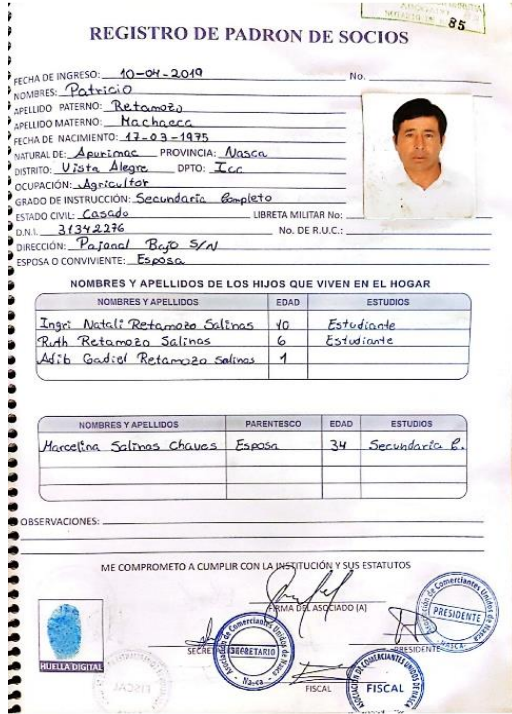 85
REGISTRO DE PADRON DE SOCIOS
FECHA DE INGRESO: 10-04-2019 No.
NOMBRES: Patricio
APELLIDO PATERNO: Retamozo
APELLIDO MATERNO: Machacca
FECHA DE NACIMIENTO: 17-03-1975
NATURAL DE: Apurimac PROVINCIA: Nasca
DISTRITO: Vista Alegre DPTO: Icc
OCUPACIÓN: Agricultor
GRADO DE INSTRUCCIÓN: Secundaria Completo
ESTADO CIVIL: Casado LIBRETA MILITAR No:
D.N.I. 31342276 No. DE R.U.C.:
DIRECCIÓN: Pajonal Bajo S/N
ESPOSA O CONVIVIENTE: Esposa
NOMBRES Y APELLIDOS DE LOS HIJOS QUE VIVEN EN EL HOGAR
NOMBRES Y APELLIDOS EDAD ESTUDIOS
Ingri Natali Retamozo Salinas 10 Estudiante
Ruth Retamozo Salinas 6 Estudiante
Adib Gadiel Retamozo Salinas 1
NOMBRES Y APELLIDOS PARENTESCO EDAD ESTUDIOS
Marcelina Salinas Chaves Esposa 34 Secundaria C.
OBSERVACIONES:
ME COMPROMETO A CUMPLIR CON LA INSTITUCIÓN Y SUS ESTATUTOS
FIRMA DEL ASOCIADO (A)
Asociación de Comerciantes Unidos de Nasca
SECRETARIO
PRESIDENTE
NASCA
PRESIDENTE
HUELLA DIGITAL
FISCAL
FISCAL
ASOCIACIÓN DE COMERCIANTES UNIDOS DE NASCA
FISCAL